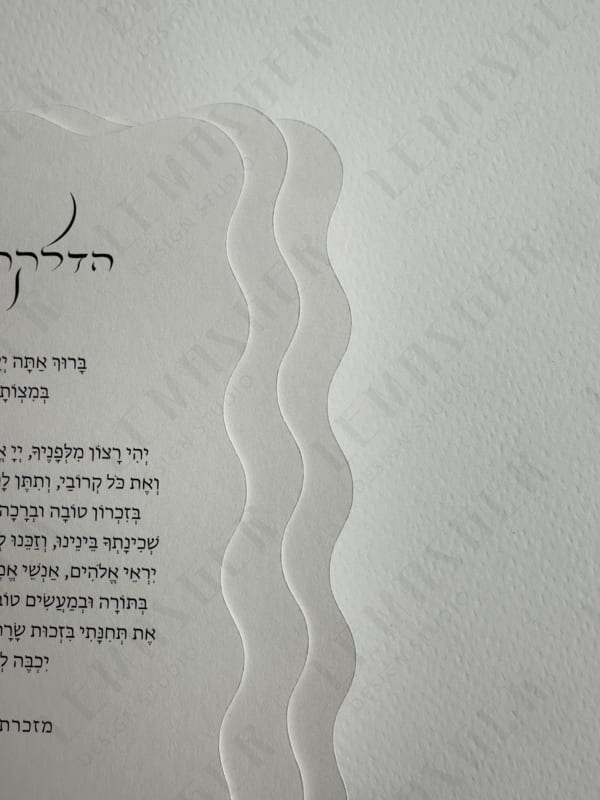 הדלקת
בָּרוּךְ אַתָּה
בְּמִצְוֹתָ
יְהִי רָצוֹן מִלְּפָנֶיךָ, יְיָ
וְאֶת כֹּל קְרוֹבַי, וְתִתֶּן
בְּזִכְרוֹן טוֹבָה וּבְרָכָה
שְׁכִינָתְךָ בֵּינֵינוּ, וְזַכֵּנוּ
יִרְאֵי אֱלֹהִים, אַנְשֵׁי
בְּתּוֹרָה וּבְמַעֲשִׂים
אֶת תְּחִנָּתִי בִּזְכוּת שָׂרָה
יִכְבֶּה
מזכרת
LEMASHER
DESIGN STUDIO